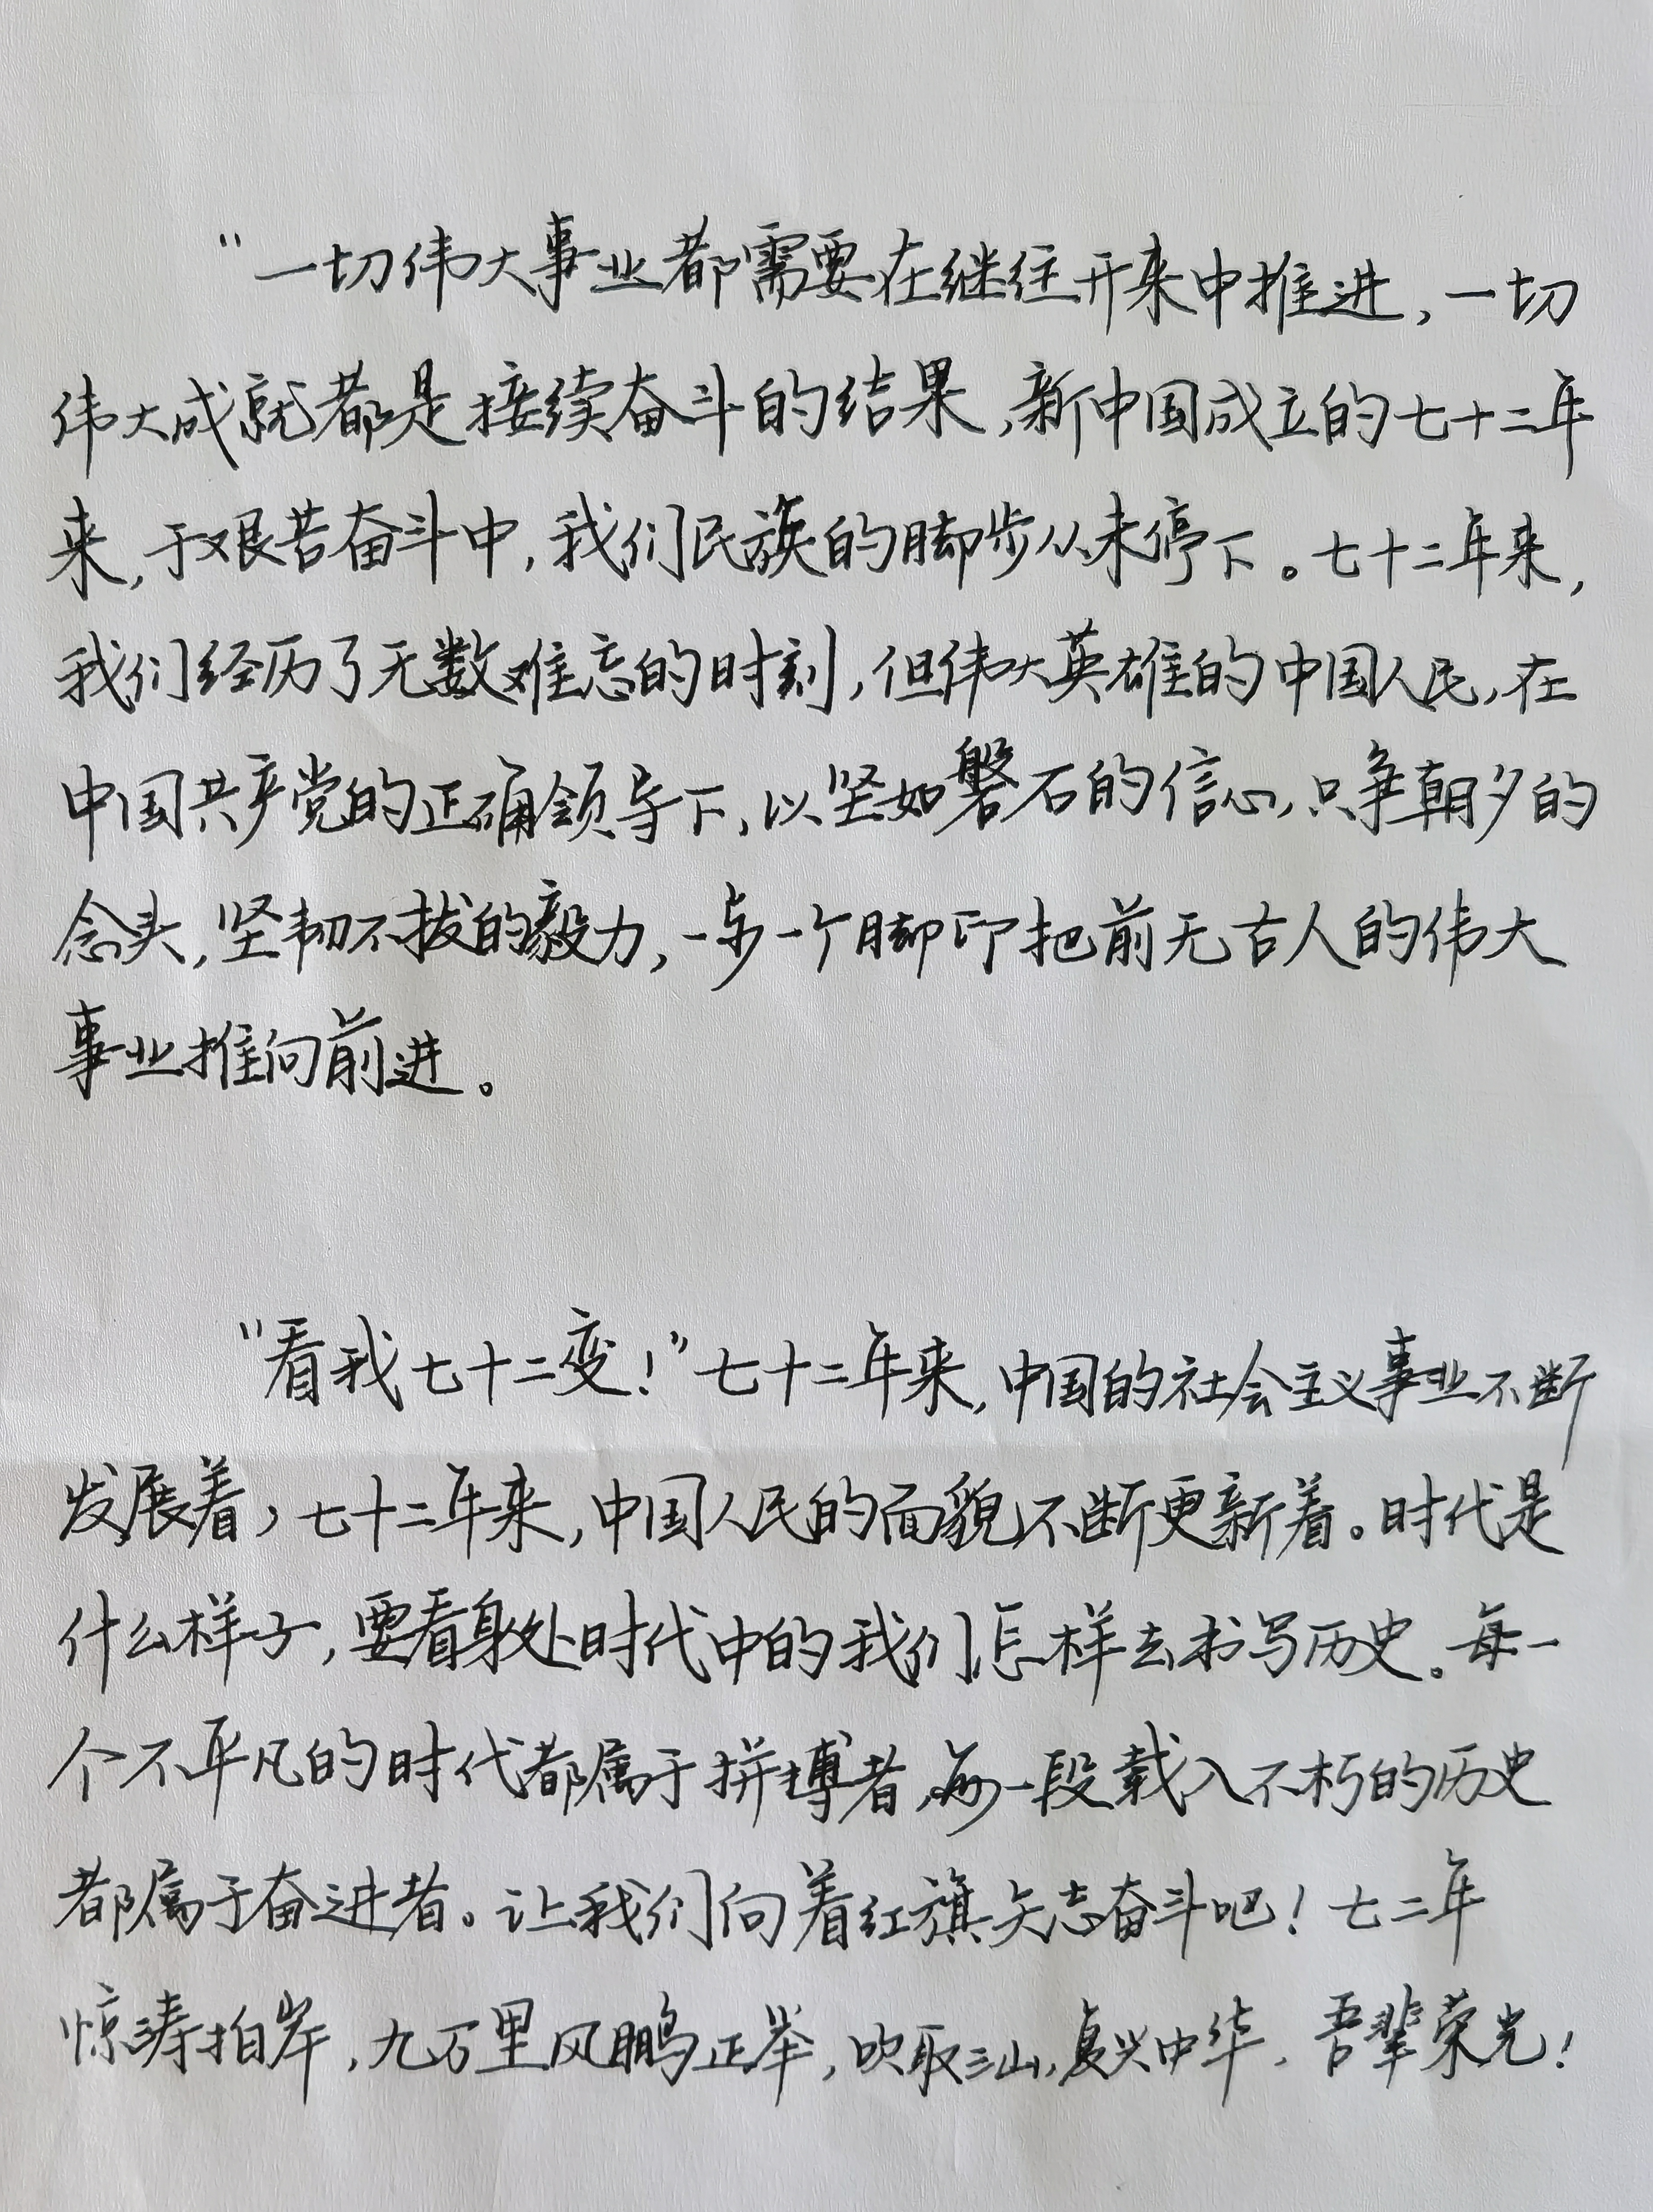 “一切伟大事业都需要在继往开来中推进，一切
伟大成就都是接续奋斗的结果，新中国成立的七十二年
来，于艰苦奋斗中，我们民族的脚步从未停下。七十二年来，
我们经历了无数难忘的时刻，但伟大英雄的中国人民，在
中国共产党的正确领导下，以坚如磐石的信心，只争朝夕的
念头，坚韧不拔的毅力，一步一个脚印把前无古人的伟大
事业推向前进。
“看我七十二变！”七十二年来，中国的社会主义事业不断
发展着，七十二年来，中国人民的面貌不断更新着。时代是
什么样子，要看身处时代中的我们怎样去书写历史。每一
个不平凡的时代都属于拼搏者，每一段载入不朽的历史
都属于奋进者。让我们向着红旗矢志奋斗吧！七二年
惊涛拍岸，九万里风鹏正举，吹取三山，复兴中华，吾辈荣光！